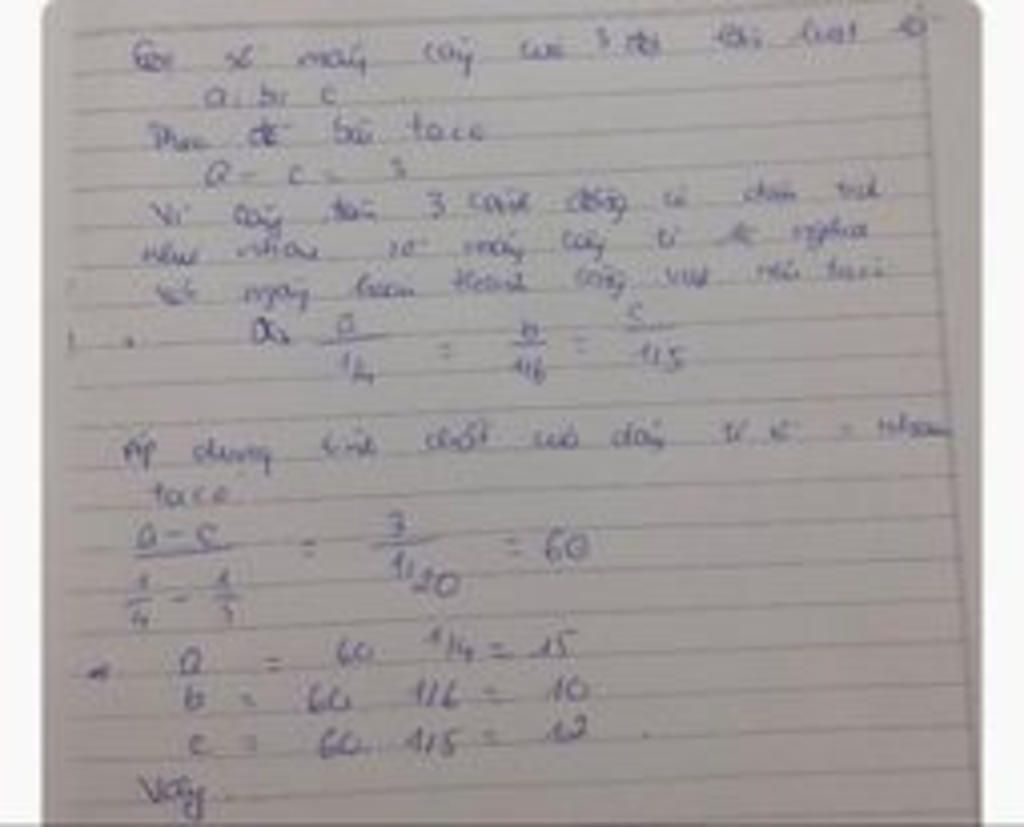 Gọi số máy cày của 3 đội lần lượt là
a, b, c
Theo đề bài ta có
a - c = 3
Vì cày trên 3 cánh đồng có diện tích
như nhau số máy cày tỉ lệ nghịch
với ngày hoàn thành công việc nên ta có
a/1/4 = b/1/6 = c/1/5
Áp dụng tính chất của dãy tỉ số = nhau
ta có
a - c / = 3 / 1/20 = 60
1/4 -
a = 60 1/4 = 15
b = 60 1/6 = 10
c = 60 1/5 = 12
Vậy